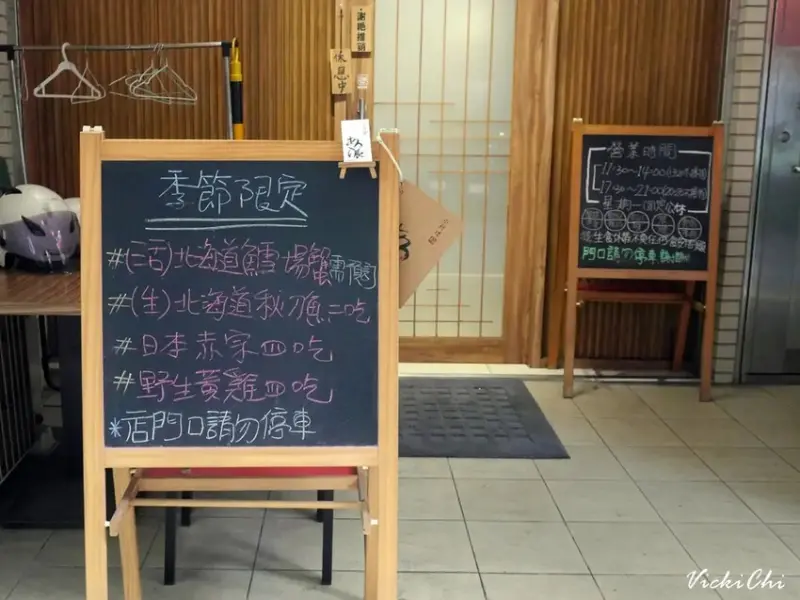 謝絶推銷
休息中
季節限定
#(活)北海道鱈場蟹 需預訂
#(生)北海道秋刀魚二吃
#日本赤宗四吃
#野生黃雞四吃
*店門口請勿停車
營業時間
11:30~14:00
17:30~21:00
星期一
門口請勿停車
VickiChi